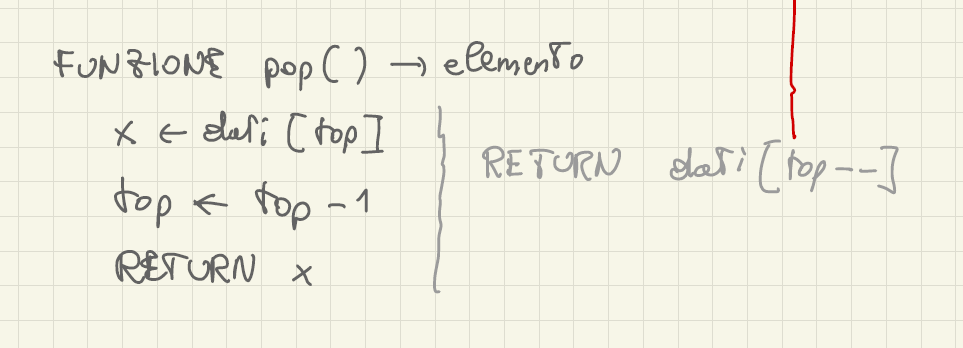 FUNZIONE pop() → elemento
x ← dati [top]
top ← top - 1
RETURN x
RETURN dati [top--]